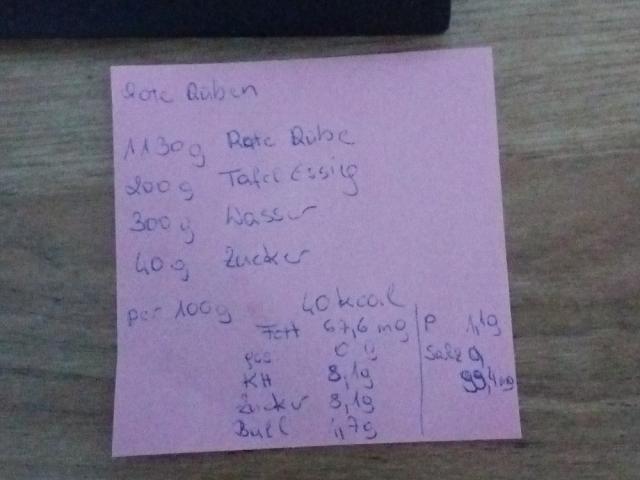 Rote Rüben
1130g Rote Rübe
200g Tafel Essig
300g Wasser
40g Zucker
per 100g 40 kcal
Fett 67,6 mg
ges. 0 g
KH 8,1g
Zucker 8,1g
Ball 1,7g
P 1,1g
Salz
99,4mg